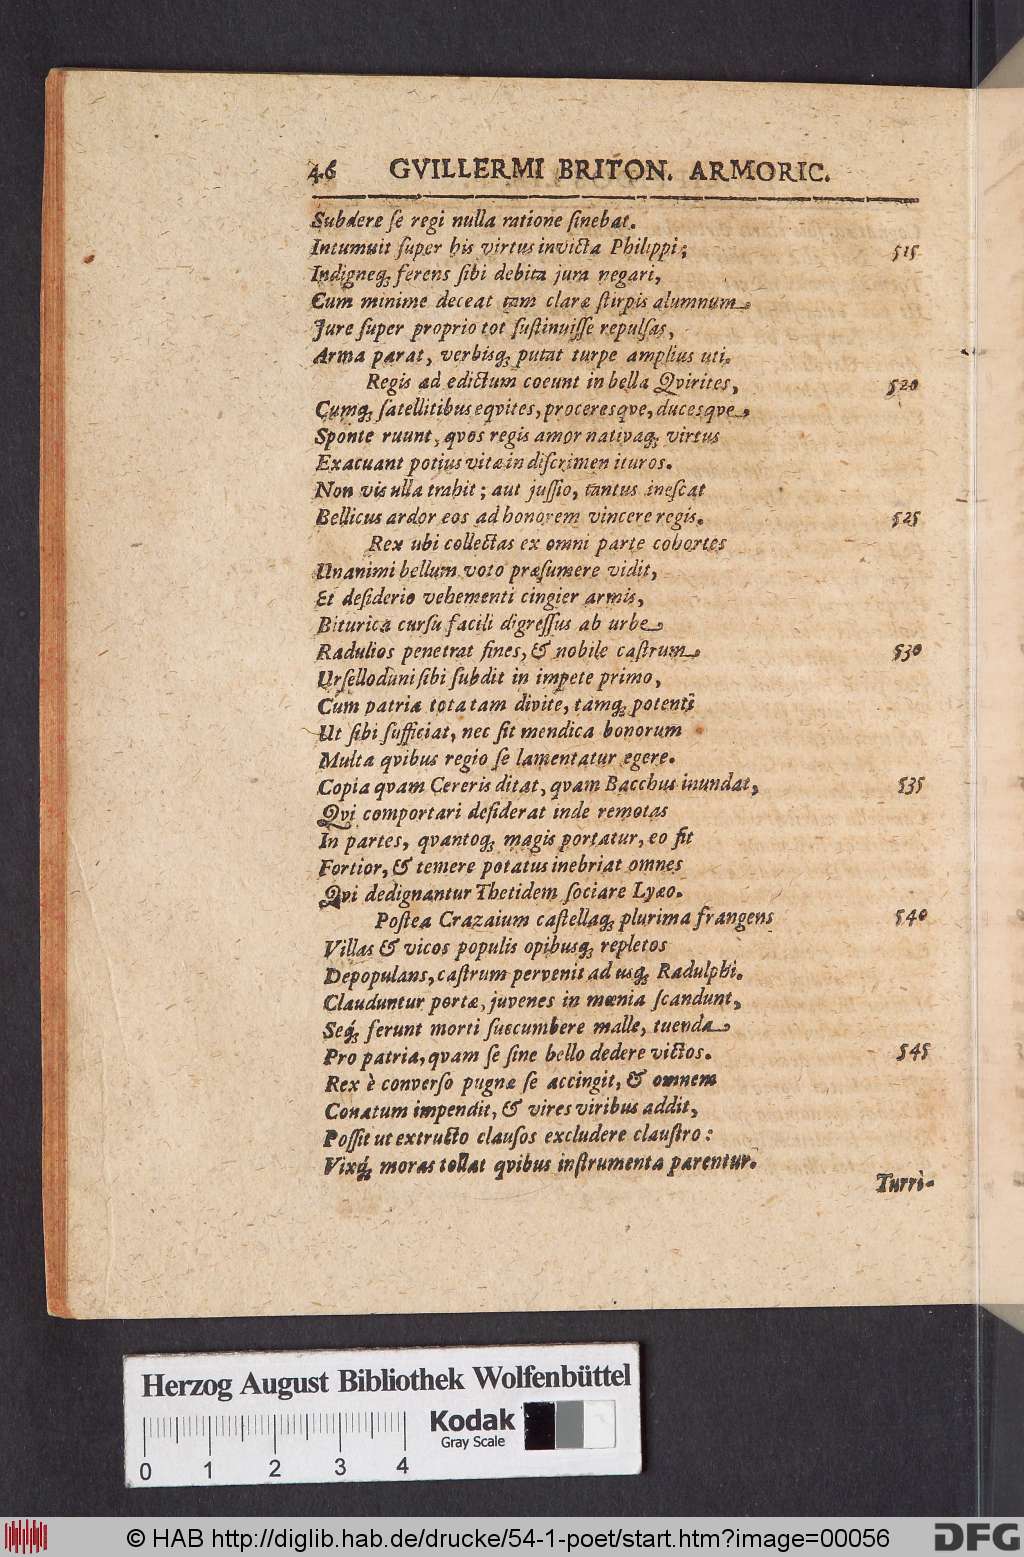 46 GVILLERMI BRITON. ARMORIC.
Subdere se regi nulla ratione sinebat.
Intumuit super his virtus invicta Philippi; 515
Indigneq; ferens sibi debita jura negari,
Cum minime deceat tam claræ stirpis alumnum
Jure super proprio tot sustinuisse repulsas,
Arma parat, verbisq; putat turpe amplius uti.
Regis ad edictum coeunt in bella Qvirites, 520
Cumq; satellitibus eqvites, proceresqve, ducesqve,
Sponte ruunt, qvos regis amor nativaq; virtus
Exacuant potius vitæ in discrimen ituros.
Non vis ulla trahit; aut jussio, tantus inescat
Bellicus ardor eos ad honorem vincere regis. 525
Rex ubi collectas ex omni parte cohortes
Unanimi bellum voto præsumere vidit,
Et desiderio vehementi cingier armis,
Biturica cursu facili digressus ab urbe
Radulios penetrat fines, & nobile castrum
 530
Urselloduni sibi subdit in impete primo,
Cum patria tota tam divite, tamq; potenti
Ut sibi sufficiat, nec sit mendica bonorum
Multa qvibus regio se lamentatur egere.
Copia qvam Cereris ditat, qvam Bacchus inundat, 535
Qvi comportari desiderat inde remotas
In partes, qvantoq; magis portatur, eo fit
Fortior, & temere potatus inebriat omnes
Qvi dedignantur Thetidem sociare Lyæo.
Postea Crazaium castellaq; plurima frangens 540
Villas & vicos populis opibusq; repletos
Depopulans, castrum pervenit ad usq; Radulphi.
Clauduntur portæ, juvenes in mœnia scandunt,
Seq; ferunt morti succumbere malle, tuenda
Pro patria, qvam se sine bello dedere victos. 545
Rex è converso pugnæ se accingit, & omnem
Conatum impendit, & vires viribus addit,
Possit ut extructo clausos excludere claustro:
Vixq; moras tollat qvibus instrumenta parentur.
Turri-
Herzog August Bibliothek Wolfenbüttel
Kodak
Gray Scale
0 1 2 3 4
© HAB http://diglib.hab.de/drucke/54-1-poet/start.htm?image=00056
DFG